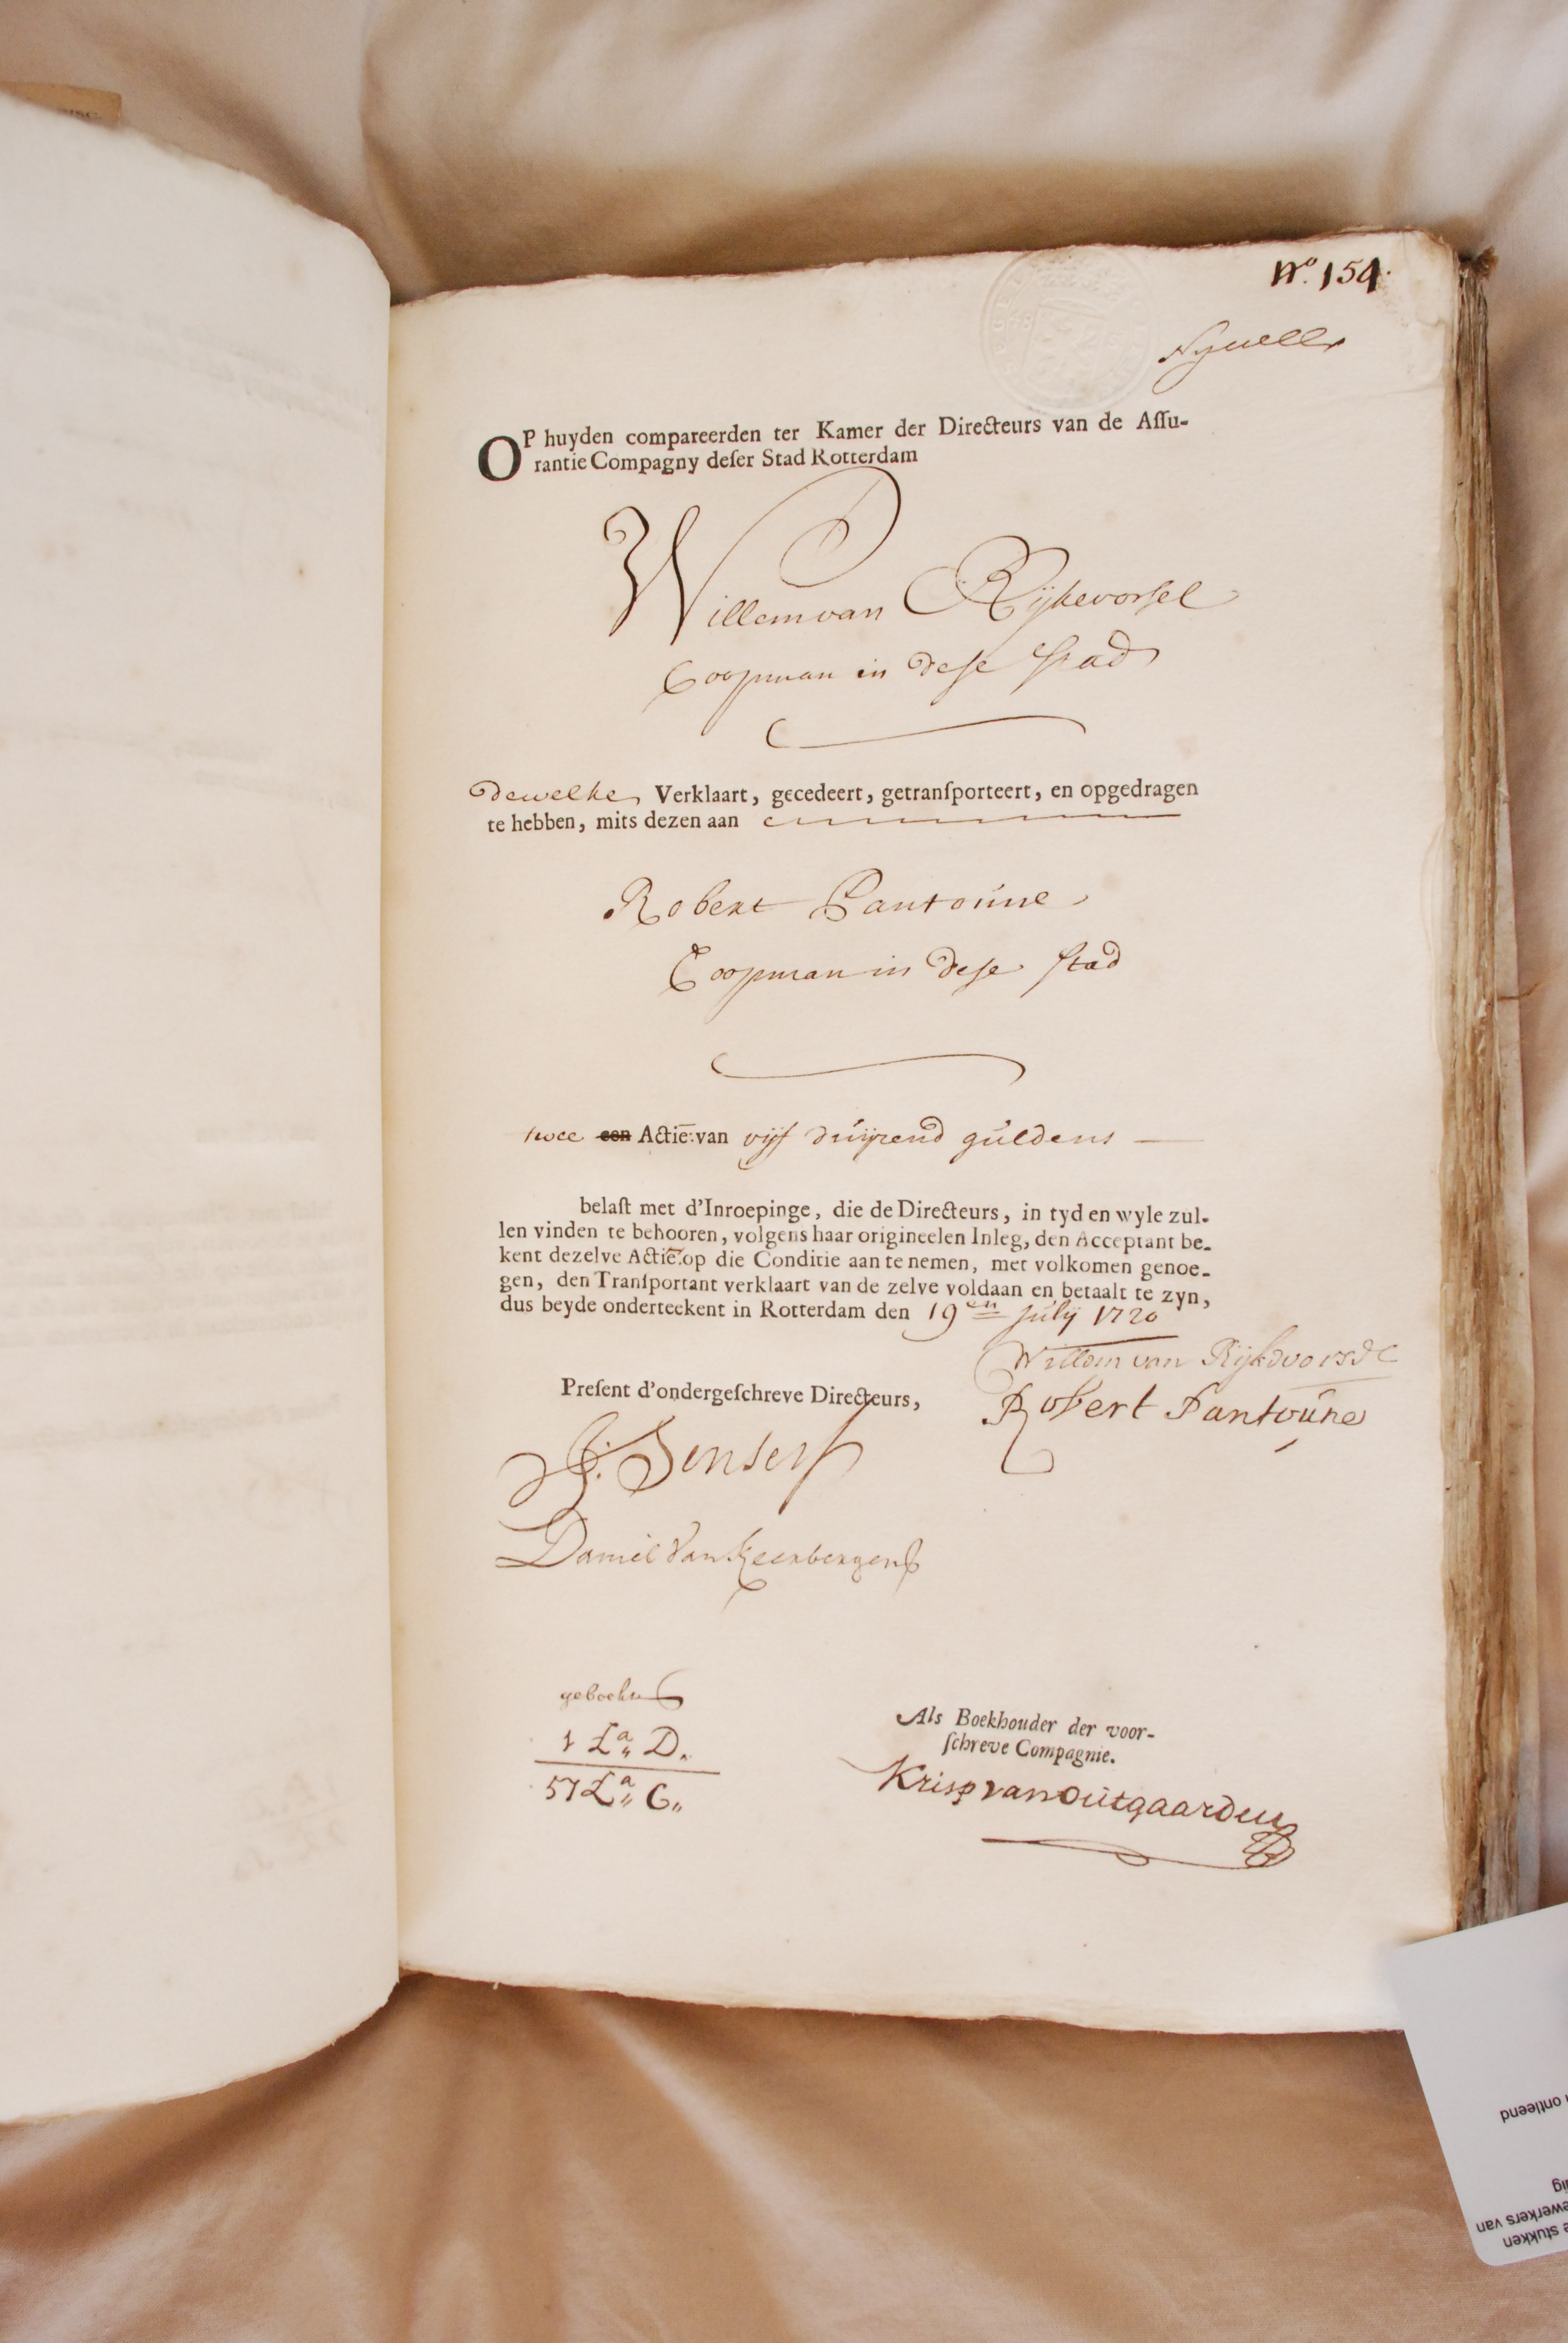 No. 154.
OP huyden compareerden ter Kamer der Directeurs van de Assu-
rantie Compagny deser Stad Rotterdam
Willem van Rijkevorsel
Coopman in dese stad
dewelke Verklaart, gecedeert, getransporteert, en opgedragen
te hebben, mits dezen aan
Robert Pantoúne
Coopman in dese stad
twee een Actie. van vijf duijzend gúldens
belast met d'Inroepinge, die de Directeurs, in tyd en wyle zul-
len vinden te behooren, volgens haar origineelen Inleg, den Acceptant be-
kent dezelve Actie. op die Conditie aan te nemen, met volkomen genoe-
gen, den Transportant verklaart van de zelve voldaan en betaalt te zyn,
dus beyde onderteekent in Rotterdam den 19en Júlij 1720
Willem van Rijkevorsel
Present d'ondergeschreve Directeurs,
Robert Pantoúne
Daniel van Keerbergen
geboekt
1 La D.
57 La C.
Als Boekhouder der voor-
schreve Compagnie.
Krisp van Outgaarden
ontleend
ewerkers van
e stukken